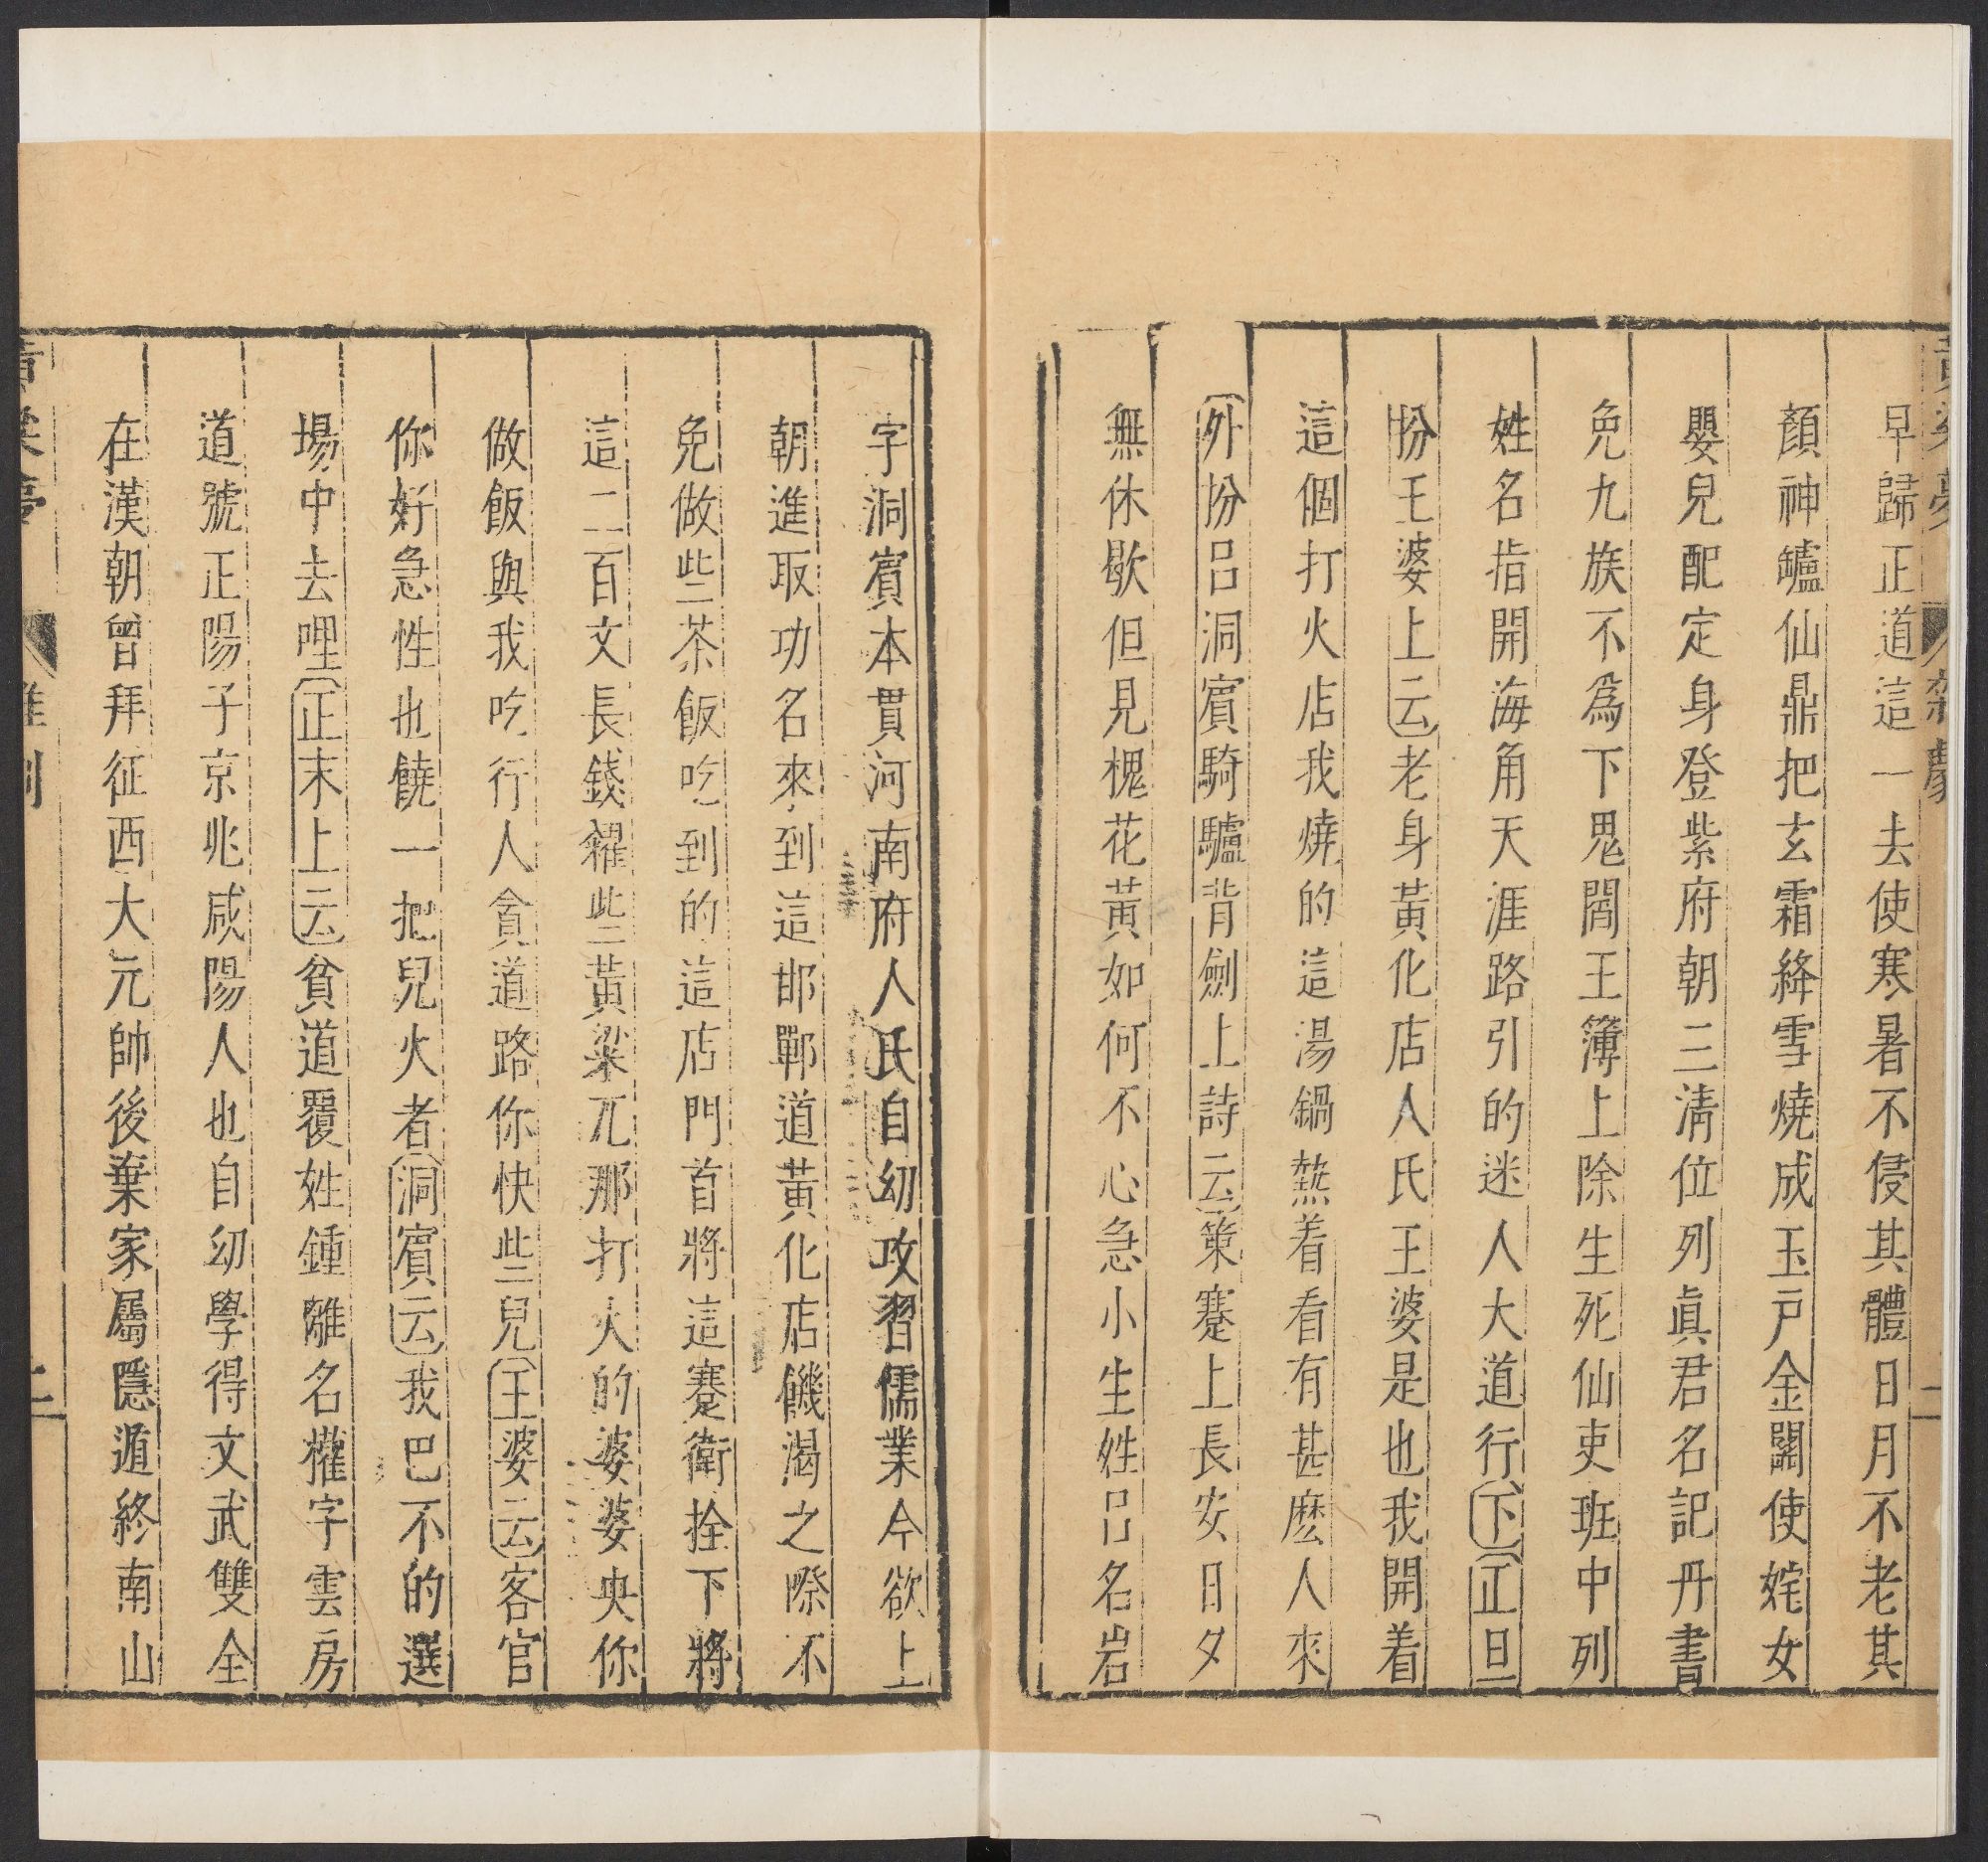 黃粱夢 雜劇 二
早歸正道這一去使寒暑不侵其體日月不老其
顏神罏仙鼎把玄霜絳雪燒成玉戶金關使姹女
嬰兒配定身登紫府朝三清位列眞君名記丹書
免九族不爲下鬼閻王簿上除生死仙吏班中列
姓名指開海角天涯路引的迷人大道行下正旦
扮王婆上云老身黃化店人氏王婆是也我開着
這個打火店我燒的這湯鍋熱着看有甚麽人來
外扮呂洞賓騎驢背劍上詩云策蹇上長安日夕
無休歇但見槐花黃如何不心急小生姓呂名岩
字洞賓本貫河南府人氏自幼攻習儒業今欲上
朝進取功名來到這邯鄲道黃化店饑渴之際不
免做些茶飯吃到的這店門首將這蹇衛拴下將
這二百文長錢糴些黃粱兀那打火的婆婆央你
做飯與我吃行人貪道路你快些兒王婆云客官
你好急性也饒一把兒火者洞賓云我巴不的選
場中去哩正末上云貧道覆姓鍾離名權字雲房
道號正陽子京兆咸陽人也自幼學得文武雙全
在漢朝曾拜征西大元帥後棄家屬隱遁終南山